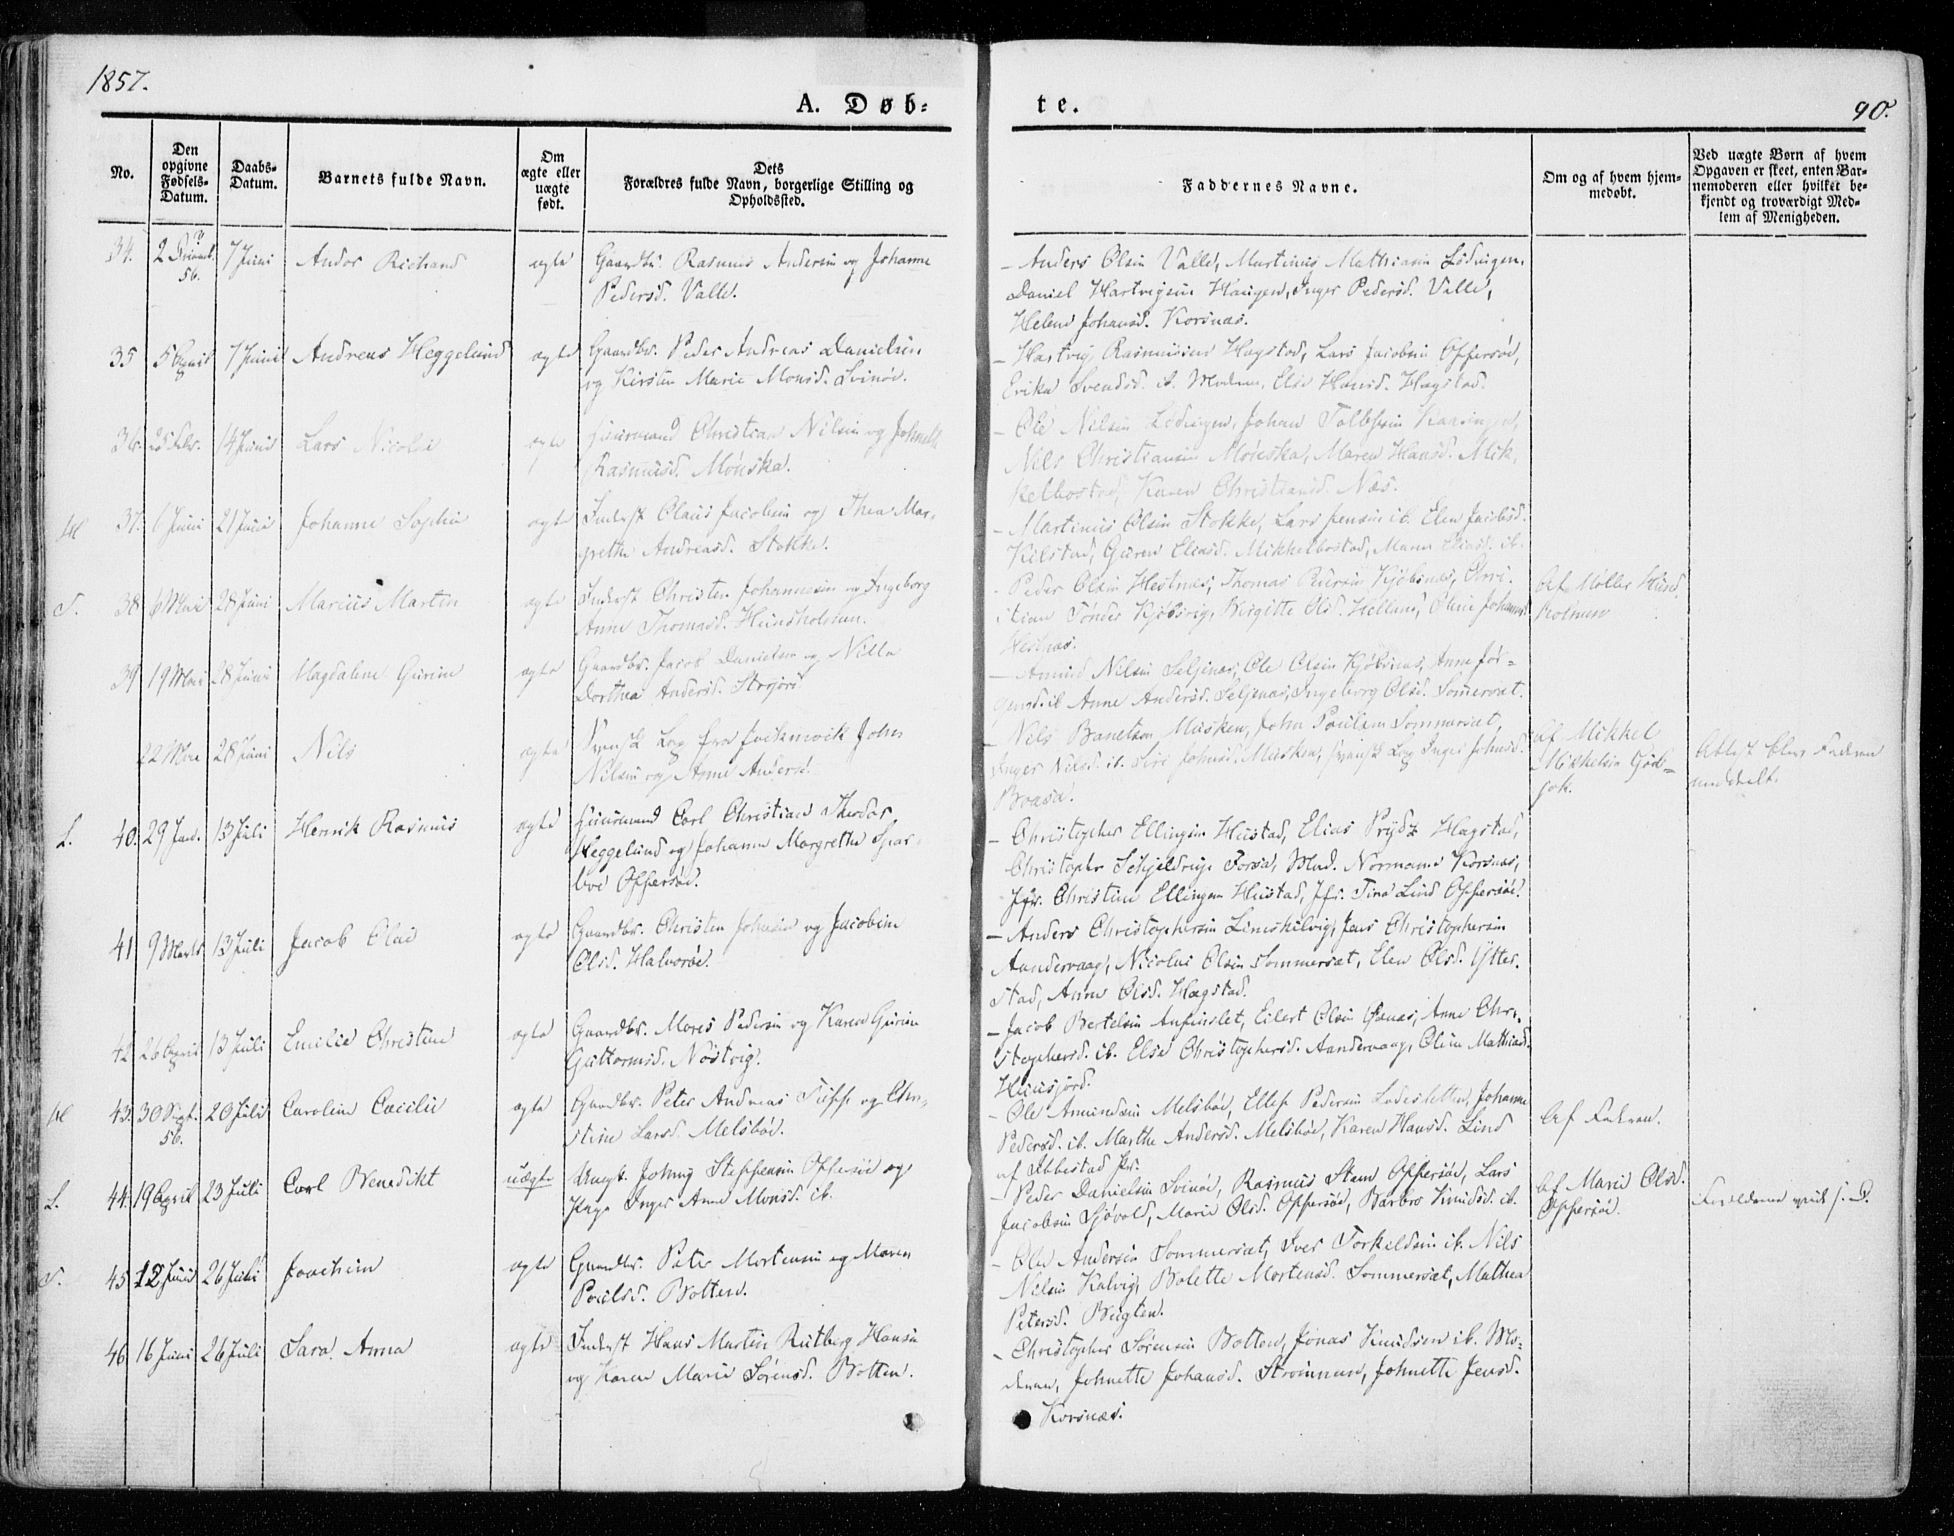 1857.
A. Døb-
te.
90.
No.
Den
opgivne
Fødsels-
Datum.
Daabs-
Datum.
Barnets fulde Navn.
Om
ægte eller
uægte
født.
Dets
Forældres fulde Navn, borgerlige Stilling og
Opholdssted.
Faddernes Navne.
Om og af hvem hjem-
medøbt.
Ved uægte Børn af hvem
Opgaven er skeet, enten Bar-
nemoderen eller hvilket be-
kjendt og troværdigt Med-
lem af Menigheden.
34. 2 56. 7 Juni Andor Richard ægte Gaardbr. Rasmus Andersen og Johanne
Pedersd. Valle.
- Anders Olsen Valle, Martinus Mathiasen Lødingen,
Daniel Hartvigsen Haugen, Inger Pedersd. Valle,
Helene Johansd. Korsnæs.
35 5 April 7 Juni Andreas Heggelund ægte Gaardbr. Peder Andreas Danielsen
og Kirsten Marie Monsd. Svinøe.
- Hartvig Rasmussen Hagstad, Lars Jacobsen Offersøe,
Erika Svendsd. ib. Moderen, Else Hansd. Hagstad.
36. 25 Febr. 14 Juni Lars Nicolai ægte Huusmand Christian Nilsen og Johnette
Rasmusd. Mønska.
- Ole Nilsen Lødingen, Johan Tolbssen
Nils Christiansen Møneska, Maren Hansd. Mik,
kelbostad, Karen Christiansd. Næs.
37. 6 Juni 21 Juni Johanne Sophie ægte Inderst Olaus Jacobsen og Thea Mar-
grethe Andreasd. Stokke.
- Martinus Olsen Stokke, Lars Jensen ib. Elen Jacobsd.
Kilstad, Guren Eliasd. Mikkelbostad, Maren Eliasd. ib.
S. 38 6 Mai 28 Juni Marius Martin ægte Inderst Christen Johannesen og Ingeborg
Anne Thomasd. Huusholmen.
- Peder Olsen Hestnæs, Thomas Kjøbsnæs, Chri-
stian Tønder Kjøbsvig, Birgitte Olsd. Hellem, Oline Johannesd.
Hestnæs.
Af Møller Huus,
holmen
39 19 Mai 28 Juni Magdalene Gurine ægte Gaardbr. Jacob Danielsen og Nilla
Dorthea Andersd.
- Amund Nilsen Seljenæs, Ole Olsen Kjøbsnæs, Anne Jør-
gensd. ib Anne Andersd. Seljenæs, Ingeborg Olsd. Sommerset.
22 Mai 28 Juni Nils ægte Svensk Lap fra Jockmock John
Nilsen og Anne Andersd.
- Nils Banetson Musken, John Poulsen Sommerset,
Inger Nilsd. ib. Siri Johnsd. Musken, svensk Lap Inger Johnsd.
af Mikkel
Mikkelsen
Faderen
meddelt.
L. 40. 29 Jan. 13 Juli Henrik Rasmus ægte Huusmand Carl Christian Theodor
Heggelund og Johanne Margrethe Spar-
boe Offersøe.
- Christopher Ellingsen Hustad, Elias Prydz Hagstad,
Christopher Schjeldrup Forsa, Mad. Normann Korsnæs,
Jfr. Christine Ellingsen Hustad, Jfr. Tina Lind Offersøe.
41 9 Marts 13 Juli Jacob Olai ægte Gaardbr. Christen Johnsen og Jacobine
Olsd. Halvorøe.
- Anders Christophersen Limskilvig, Jens Christophersen
Aandervaag, Nicolai Olsen Sommerset, Elen Olsd. Ytter-
stad, Anne Olsd. Hagstad.
42. 26 April 13 Juli Emilie Christine ægte Gaardbr. Mons Pedersen og Karen Gurine
Guttormsd. Nøstvig.
- Jacob Bertelsen Anfinslet, Eilert Olsen Anne Chri-
stophersd. ib. Else Christophersd. Aandervaag, Oline Mathiasd.
Huusjord.
43. 30 Sept. 56. 20 Juli Caroline Cæcilie ægte Gaardbr. Peter Andreas Tusse og Chri-
stine Larsd. Melsbøe.
- Ole Amundsen Melsbøe, Ellef Pedersen Lodesletten, Johanne
Pedersd. ib. Marthe Andersd. Melsbøe, Karen Hansd. Lind
af Ibbestad Pr.
Af Faderen.
L. 44. 19 April 23 Juli Carl Benedikt uægte Ungk. Johan Steffensen Offersøe og
Pige Inger Anne Monsd. ib.
- Peder Danielsen Svinøe, Rasmus Stam Offersøe, Lars
Jacobsen Sjøvold, Marie Olsd. Offersøe, Barbro Knudsd. ib.
Af Marie Olsd.
Offersøe.
Forældrene
S. 45 12 Juni 26 Juli Joachim ægte Gaardbr. Peter Mortensen og Maren
Poulsd. Botten.
- Ole Andersen Sommerset, Iver Torkeldsen ib. Nils
Nilsen Kalvig, Bolette Mortensd. Sommerset, Mathea
Petersd. Bugten.
46. 16 Juni 26 Juli Sara Anna ægte Inderst Hans Martin Rutberg Hansen
og Karen Marie Sørensd. Botten.
- Christopher Sørensen Botten, Jonas Knudsen ib. Mo-
deren, Johnette Johansd. Strømmen, Johnette Jensd.
Korsnæs.